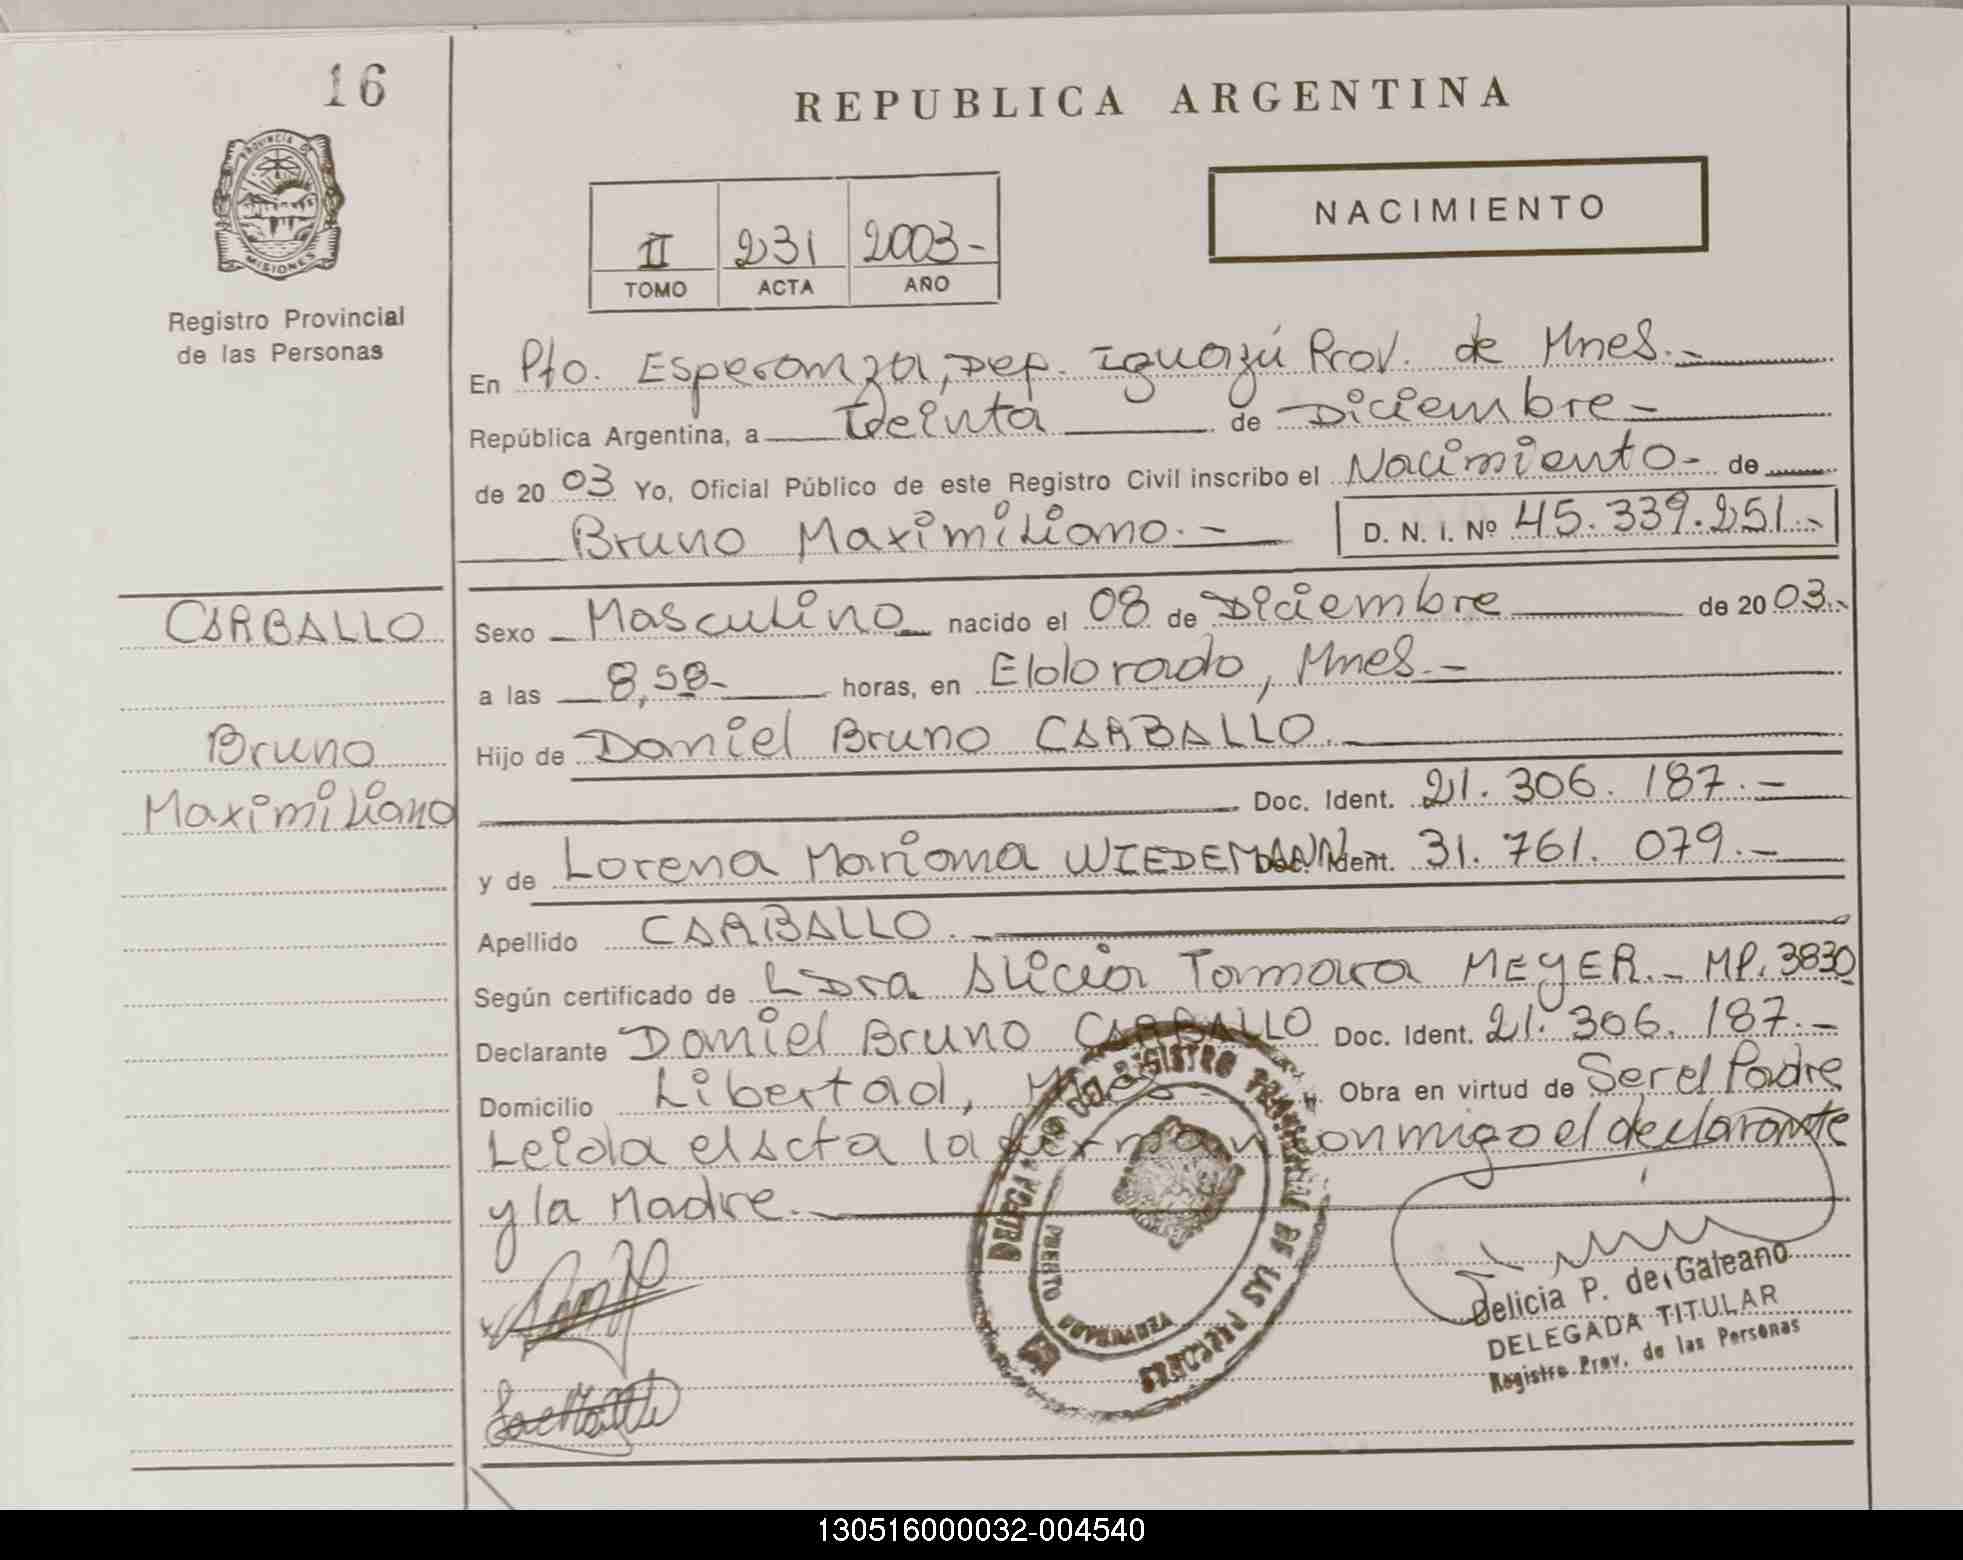 16
REPUBLICA ARGENTINA
PROVINCIA DE
MISIONES
Registro Provincial
de las Personas
NACIMIENTO
II 231 2003-
TOMO ACTA AÑO
En Pto. Esperanza, Dep. Iguazú Prov. de Mnes.-
República Argentina, a Treinta de Diciembre-
de 20 03 Yo, Oficial Público de este Registro Civil inscribo el Nacimiento- de
Bruno Maximiliano.- D. N. I. Nº 45.339.251.-
CARBALLO
Bruno
Maximiliano
Sexo Masculino nacido el 08 de Diciembre de 20 03.-
a las 8,58- horas, en Eldorado, Mnes.-
Hijo de Daniel Bruno CARBALLO.
Doc. Ident. 21.306.187.-
y de Lorena Mariana WIEDEMANN- Doc. Ident. 31.761.079.-
Apellido CARBALLO.-
Según certificado de LDra Alicia Tamara MEYER.- MP. 3830
Declarante Daniel Bruno CARBALLO Doc. Ident. 21.306.187.-
Domicilio Libertad, Mnes- Obra en virtud de Ser el Padre
Leida el Acta la firman conmigo el declarante
y la Madre.-
DELEGACION DEL REGISTRO PROVINCIAL DE LAS PERSONAS
PUERTO ESPERANZA
Delicia P. de Galeano
DELEGADA TITULAR
Registro Prov. de las Personas
130516000032-004540